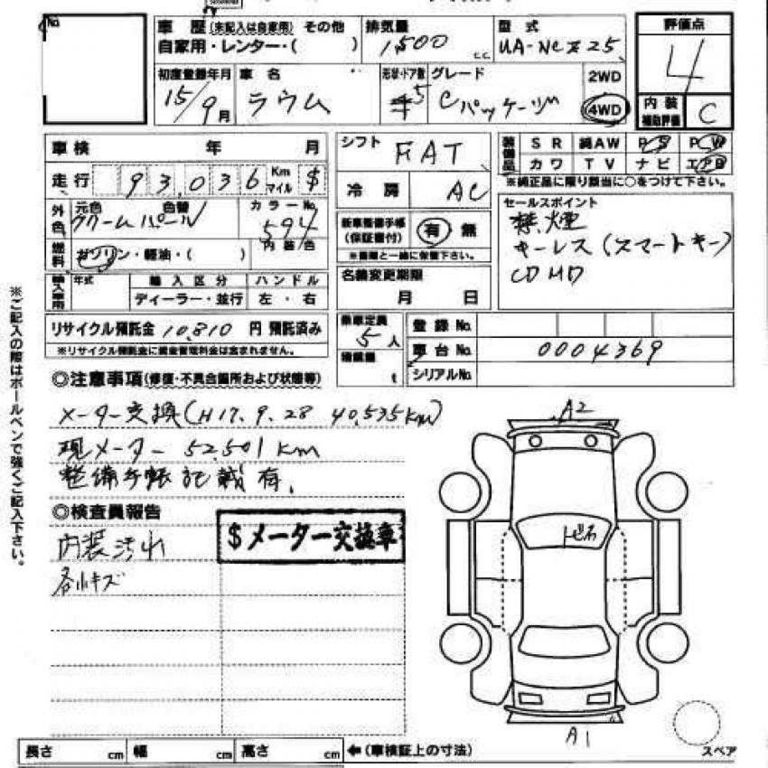 No.
車歴 (未記入は自家用) その他
自家用・レンター・( )
排気量
1,500 c.c.
型式
UA-NCZ25
評価点
4
初度登録年月
15/9月
車名
ラウム
形状・ドア数
5
グレード
Cパッケージ
2WD
4WD
内装
補助評価
C
車検 年 月
シフト
FAT
装備品
SR 純AW PS PW
カワ TV ナビ エアB
※純正品に限り該当に○をつけて下さい。
走行 93,036 Km マイル $
冷房 AC
外色
元色 色替
クリームパール
カラーNo.
594
内装色
新車整備手帳
(保証書付)
有 無
※書類と一緒に保管下さい。
セールスポイント
禁煙
キーレス(スマートキー)
CD MD
燃料
ガソリン・軽油・( )
輸入車用
年式
輸入区分
ディーラー・並行
ハンドル
左・右
名義変更期限
月 日
リサイクル預託金 10,810 円 預託済み
※リサイクル預託金に資金管理料金は含まれません。
乗車定員
5人
積載量
t
登録No.
車台No. 0004369
シリアルNo.
◎注意事項(修復・不具合箇所および状態等)
メーター交換(H17.9.28 40,535km)
現メーター 52,501km
整備手帳記載有.
◎検査員報告
$メーター交換車
内装汚れ
各小キズ
A2
トビ石
A1
スペア
長さ cm 幅 cm 高さ cm ←(車検証上の寸法)
※ご記入の際はボールペンで強くご記入下さい。